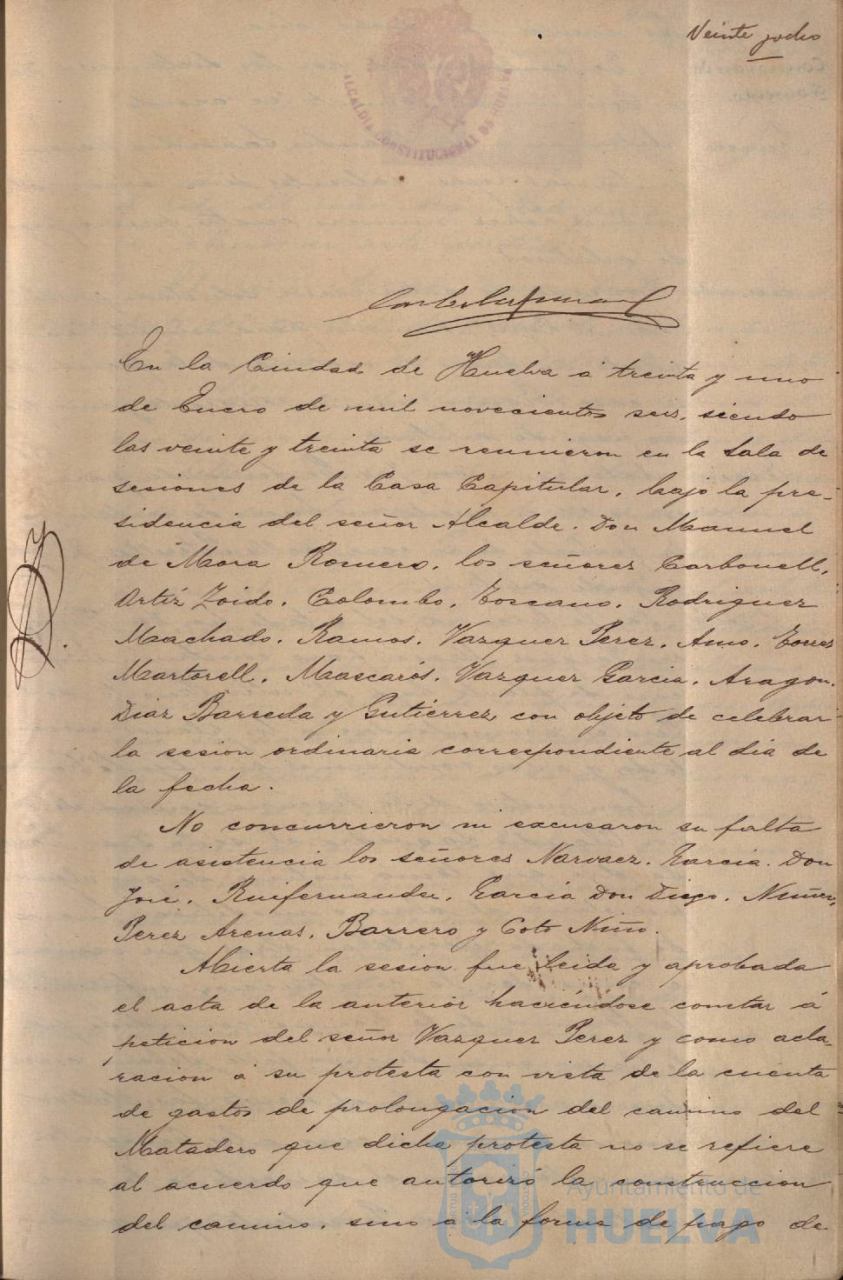 Veinte y ocho
ALCALDIA CONSTITUCIONAL DE HUELVA
En la Ciudad de Huelva á treinta y uno
de Enero de mil novecientos seis, siendo
las veinte y treinta se reunieron en la Sala de
sesiones de la Casa Capitular, bajo la pre-
sidencia del señor Alcalde. Don Manuel
de Mora Romero, los señores Carbonell,
Ortiz Zoido, Colombo, Toscano, Rodriguez
Machado, Ramos, Vazquez Perez, Amo, Torres
Martorell, Mascarós, Vazquez Garcia, Aragon,
Diaz Barreda y Gutiérrez con objeto de celebrar
la sesion ordinaria correspondiente al dia de
la fecha.
No concurrieron ni excusaron su falta
de asistencia los señores Narvaez, Garcia Don
José, Ruifernandez, García Don Diego, Nuñez,
Perez Arenas, Barrero y Coto Niño.
Abierta la sesion fue leida y aprobada
el acta de la anterior haciéndose constar á
peticion del señor Vazquez Perez y como acla-
racion á su protesta con vista de la cuenta
de gastos de prolongacion del camino del
Matadero que dicha protesta no se refiere
al acuerdo que autorizó la construccion
del camino, sino a la forma de pago de
Ayuntamiento de
HUELVA